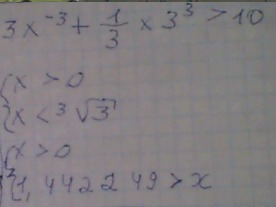 3x⁻³ + 1/3 × 3³ > 10
{x > 0
{x < ³√3
{x > 0
{1,442249 > x